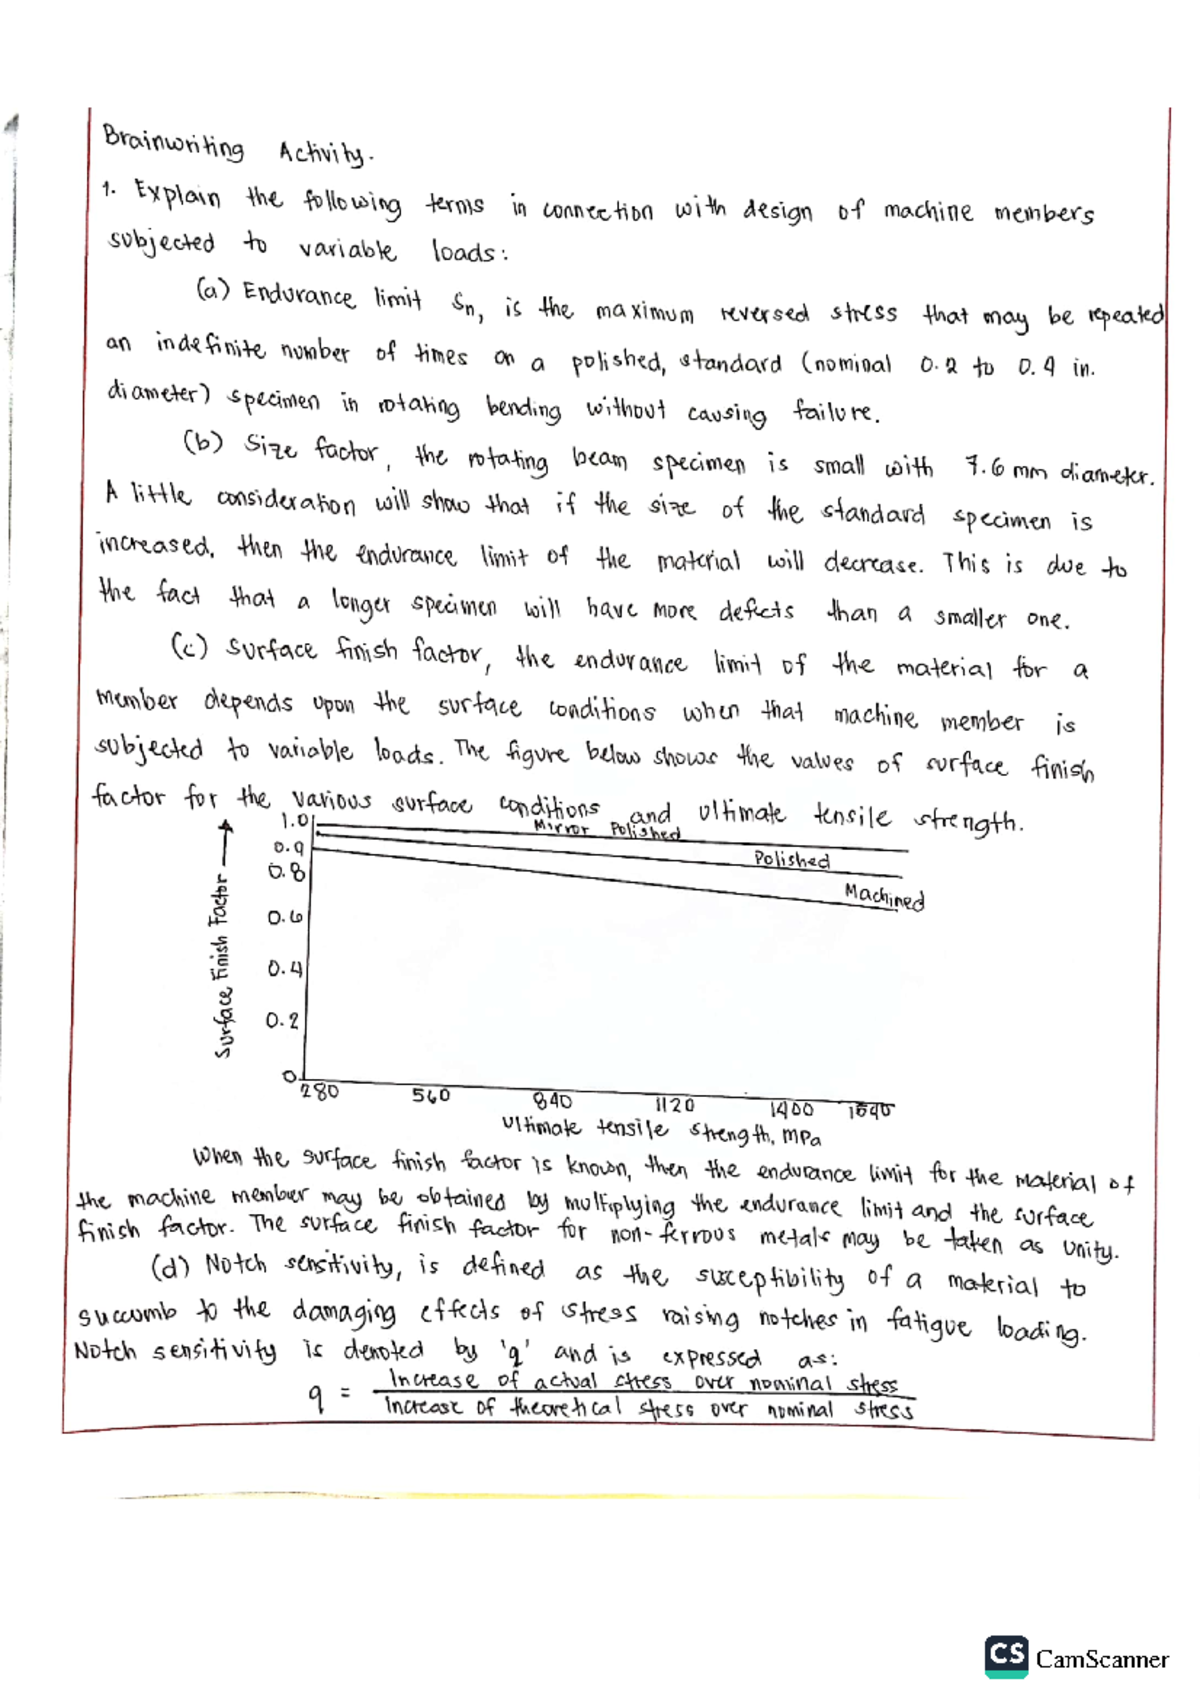 Brainwriting Activity.
1. Explain the following terms in connection with design of machine members
subjected to variable loads:
(a) Endurance limit Sn, is the maximum reversed stress that may be repeated
an indefinite number of times on a polished, standard (nominal 0.2 to 0.4 in.
diameter) specimen in rotating bending without causing failure.
(b) Size factor, the rotating beam specimen is small with 7.6 mm diameter.
A little consideration will show that if the size of the standard specimen is
increased, then the endurance limit of the material will decrease. This is due to
the fact that a longer specimen will have more defects than a smaller one.
(c) Surface finish factor, the endurance limit of the material for a
member depends upon the surface conditions when that machine member is
subjected to variable loads. The figure below shows the values of surface finish
factor for the various surface conditions and ultimate tensile strength.
1.0
Mirror Polished
0.9
Polished
0.8
Machined
0.6
0.4
0.2
0
Surface Finish Factor
280 560 840 1120 1400
Ultimate tensile strength, MPa
When the surface finish factor is known, then the endurance limit for the material of
the machine member may be obtained by multiplying the endurance limit and the surface
finish factor. The surface finish factor for non-ferrous metals may be taken as unity.
(d) Notch sensitivity, is defined as the susceptibility of a material to
succumb to the damaging effects of stress raising notches in fatigue loading.
Notch sensitivity is denoted by 'q' and is expressed as:
q = Increase of actual stress over nominal stress
Increase of theoretical stress over nominal stress
CS CamScanner